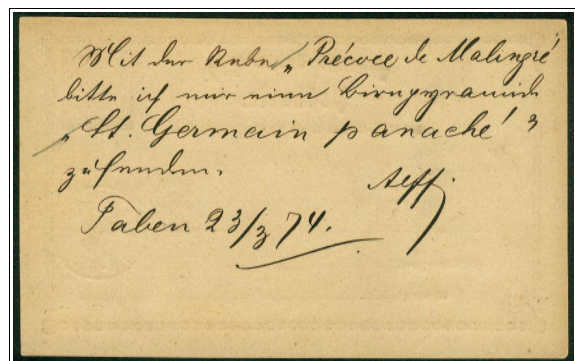 Mit der Rebe „Précoce de Malingré
bitte ich mir eine Birnpyramide
„St. Germain panaché"
zusenden.
Taben 23/3 74.